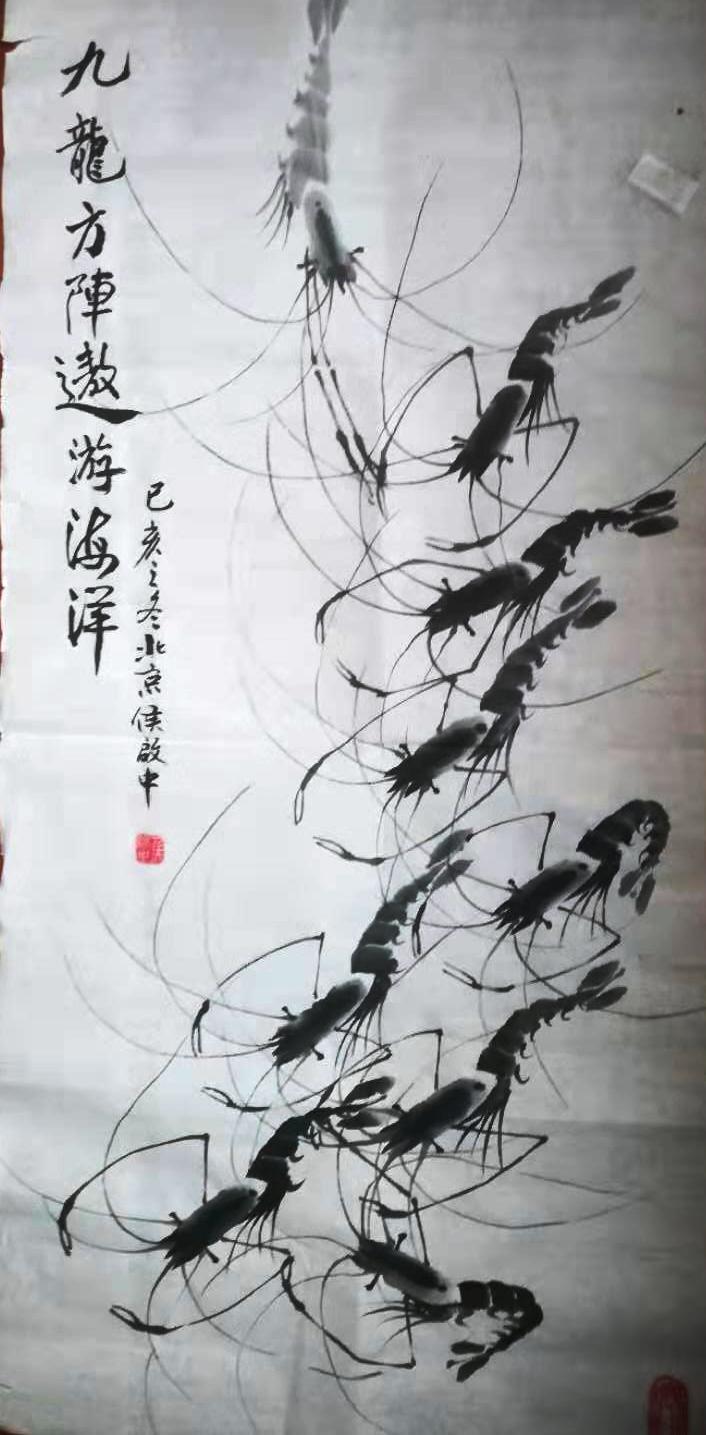 九龍方陣遨游海洋
已亥之冬北京侯啟中